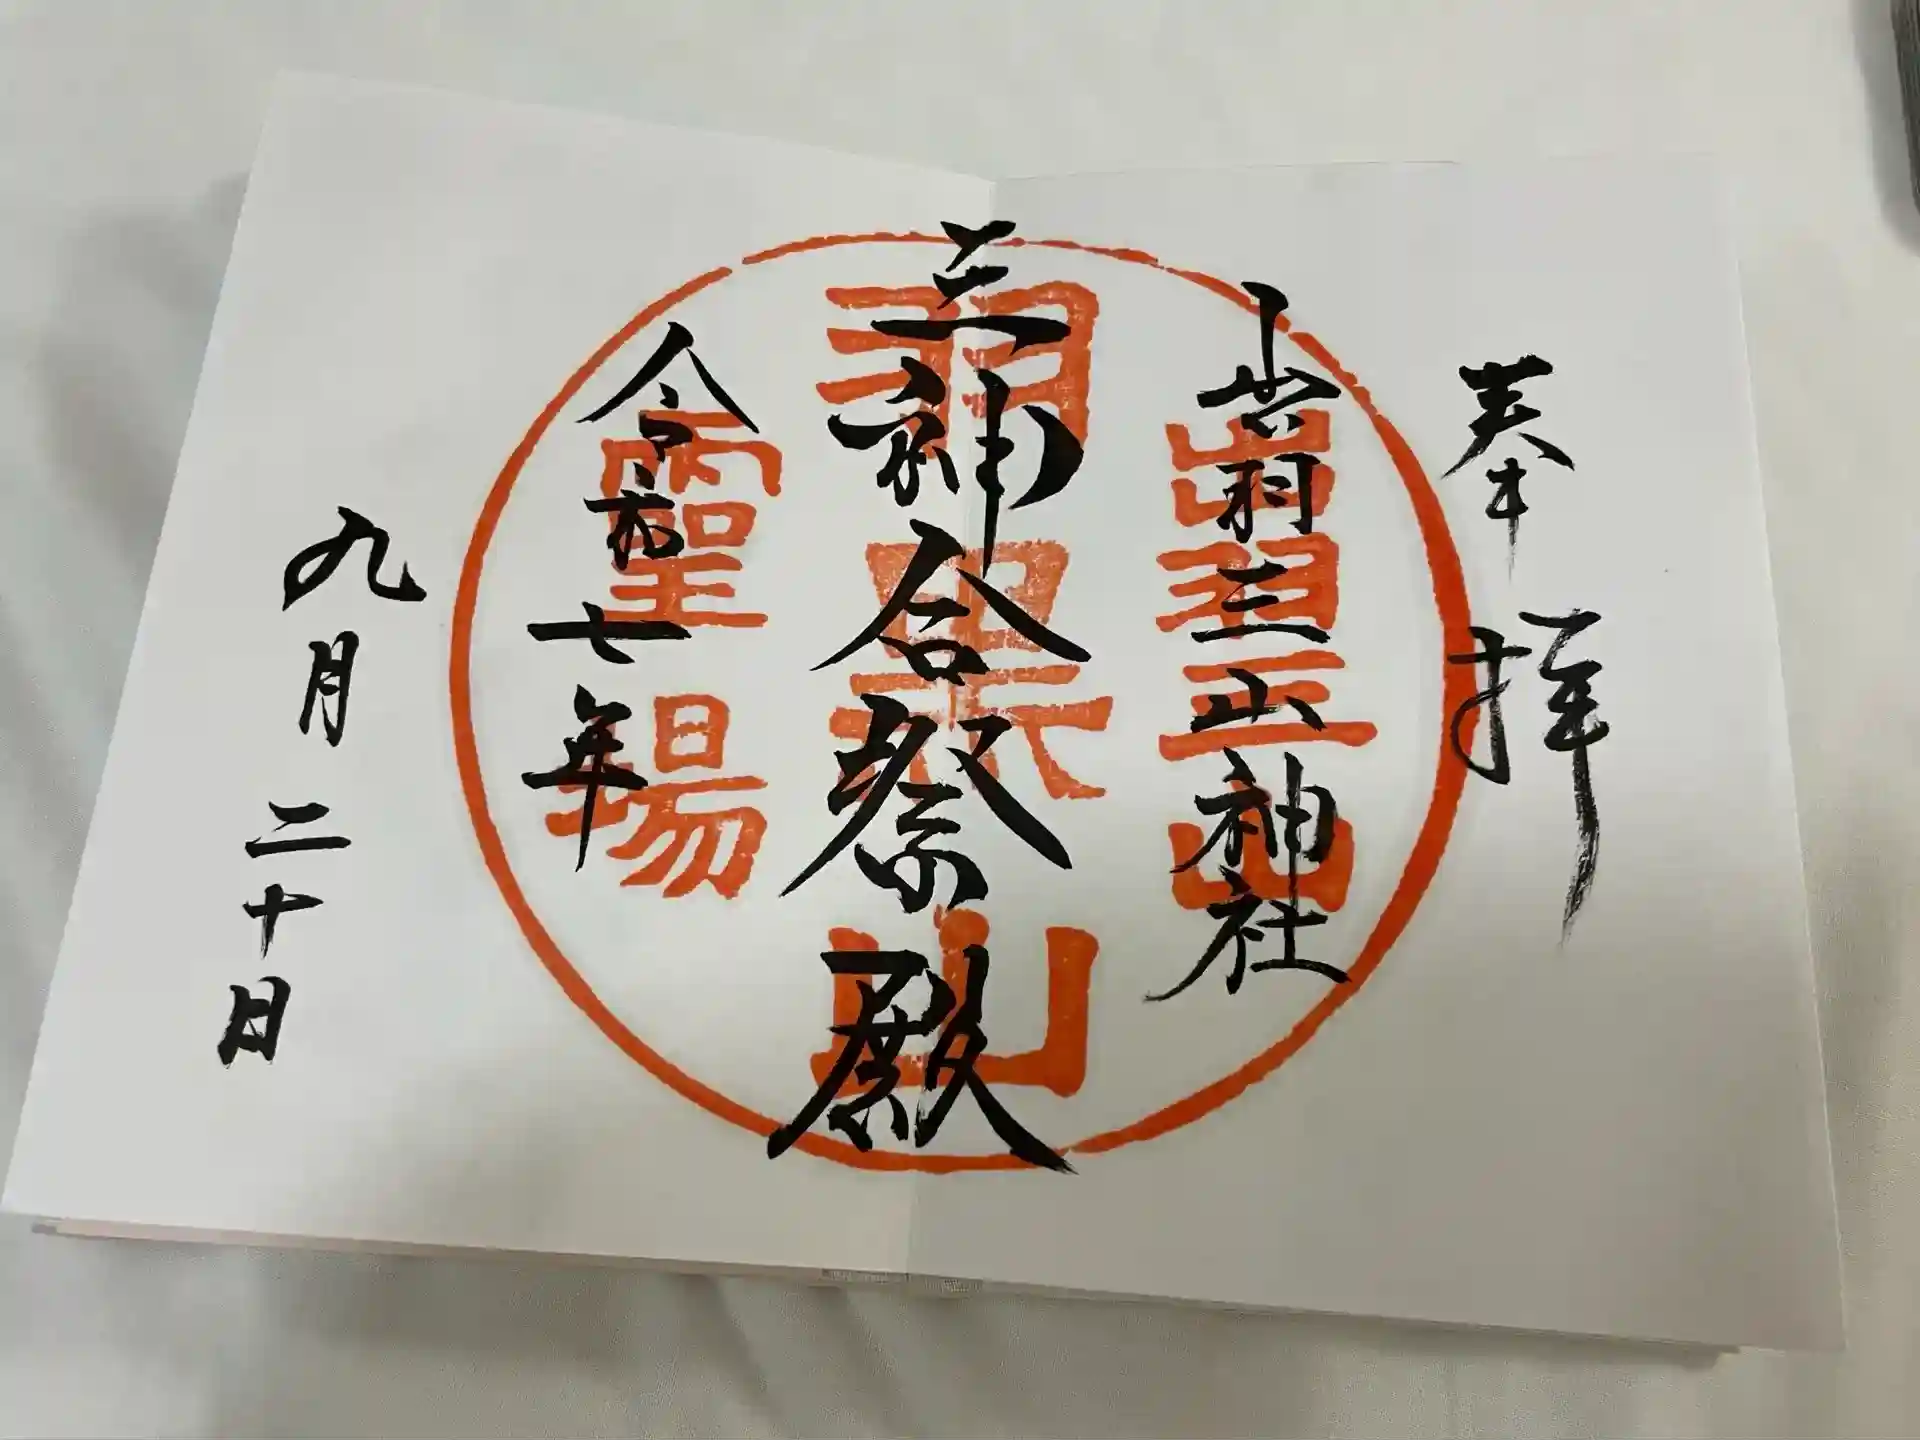 奉拝
出羽三山神社
三神合祭殿
令和七年
九月二十日
出羽三山
羽黒山
靈場